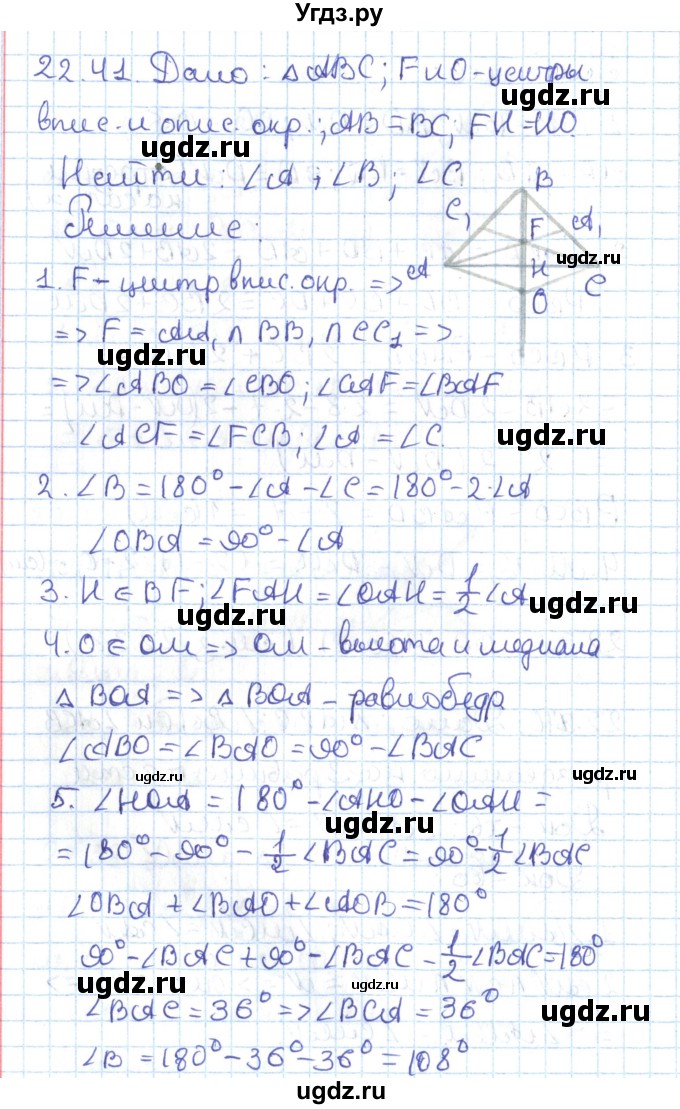 Угдз.ру
22.41. Дано: △ABC; F и O - центры
впис. и опис. окр.; AB = BC; FH = HO.
ugdz.ru
Найти: ∠A; ∠B; ∠C.
Решение:
B
C₁
F
A₁
ugdz.ru
A
H
C
O
1. F - центр впис. окр. =>
=> F = AA₁ ∩ BB₁ ∩ CC₁ =>
ugdz.ru
=> ∠ABO = ∠CBO; ∠CAF = ∠BAF
∠ACF = ∠FCB; ∠A = ∠C.
ugdz.ru
2. ∠B = 180° - ∠A - ∠C = 180° - 2·∠A
∠OBA = 90° - ∠A
3. H ∈ BF; ∠FAH = ∠OAH = 1/2 ∠A
ugdz.ru
ugdz.ru
4. O ∈ OM => OM - высота и медиана
△BOA => △BOA - равнобедр
∠ABO = ∠BAO = 90° - ∠BAC
ugdz.ru
ugdz.ru
5. ∠HOA = 180° - ∠AHO - ∠OAH =
ugdz.ru
= 180° - 90° - 1/2 ∠BAC = 90° - 1/2 ∠BAC
∠OBA + ∠BAO + ∠AOB = 180°
90° - ∠BAC + 90° - ∠BAC - 1/2 ∠BAC = 180°
ugdz.ru
∠BAC = 36° => ∠BCA = 36°
ugdz.ru
∠B = 180° - 36° - 36° = 108°
ugdz.ru